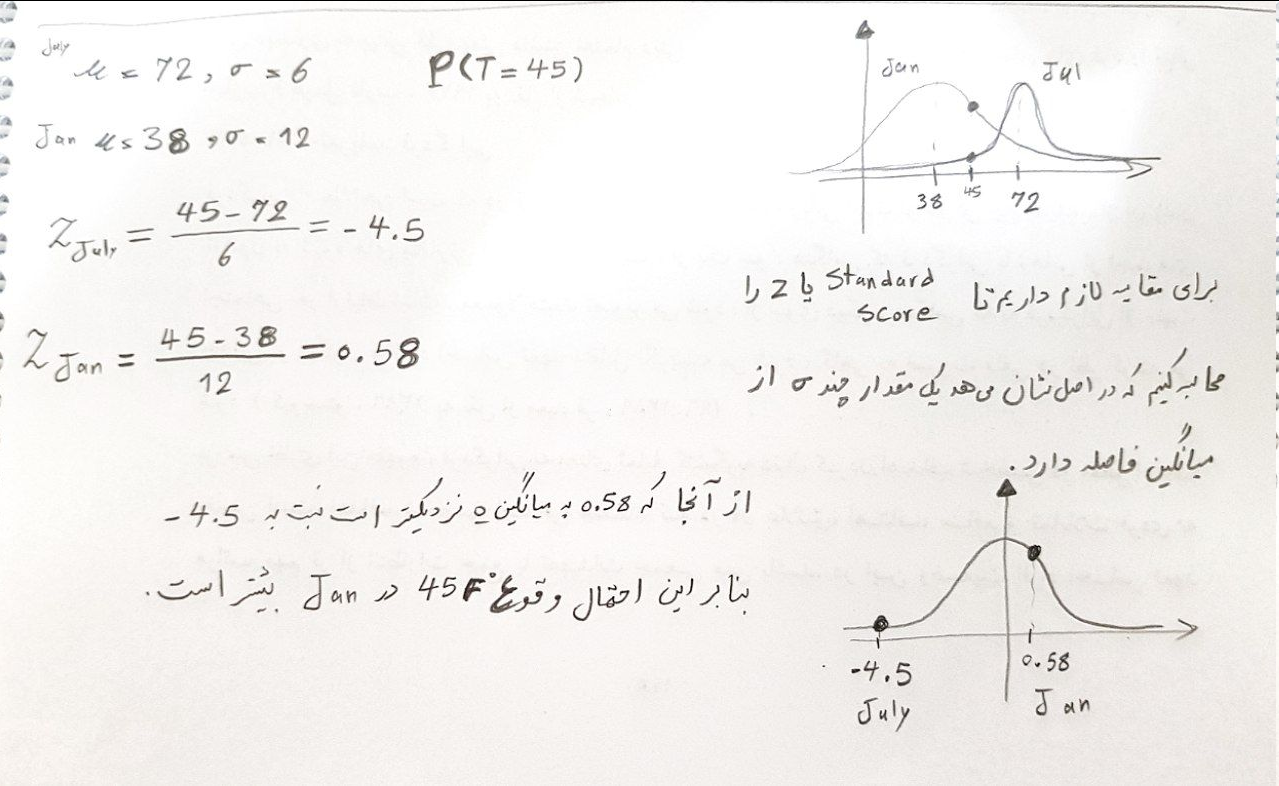 July μ = 72 , σ = 6
P(T = 45)
Jan μ = 38 , σ = 12
Z July = (45 - 72) / 6 = - 4.5
Z Jan = (45 - 38) / 12 = 0.58
Jan Jul
38 45 72
برای مقایسه لازم داریم تا Standard Score یا Z را
محاسبه کنیم که در اصل نشان می‌هد یک مقدار چند σ از
میانگین فاصله دارد.
از آنجا که 0.58 به میانگین 0 نزدیکتر است نسبت به -4.5
بنابراین احتمال وقوع 45F° در Jan بیشتر است.
-4.5 0.58
July Jan